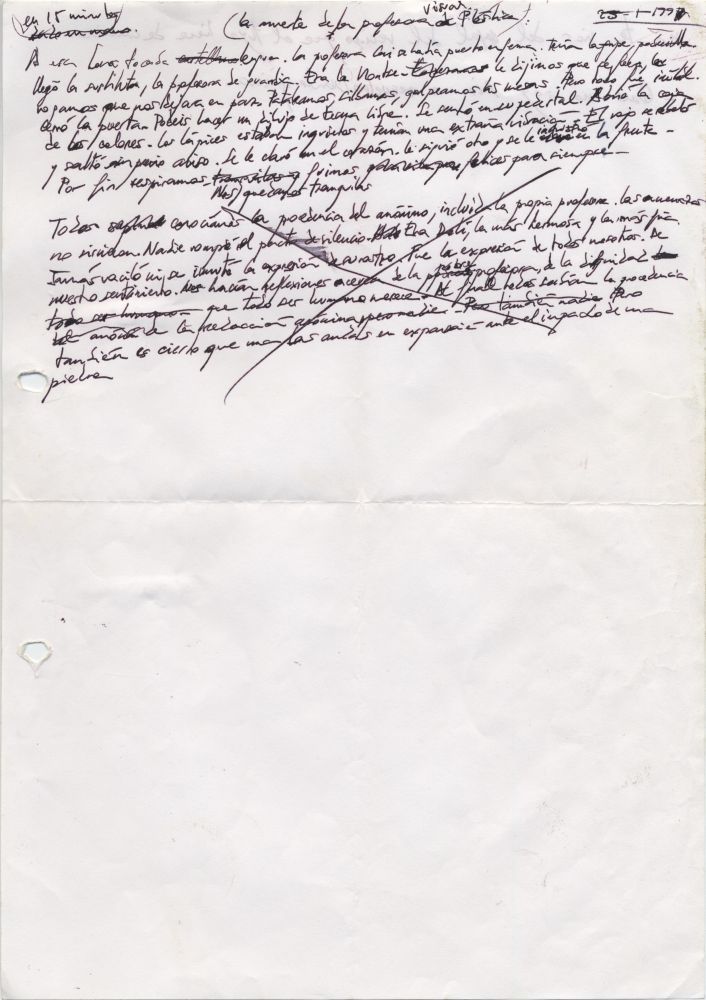 en 15 minutos
(La muerte de la profesora de Plástica) Visual 25-1-1997
A esa hora tocaba lengua. La profesora Coni se había puesto enferma. Tenía la gripe,
llegó la sustituta, la profesora de guardia. Era la Montse. Le dijimos que se fuera, le
rogamos que nos dejara en paz. Pataleamos, silbamos, golpeamos las mesas. Pero todo fue inútil.
Cerró la puerta. Podéis hacer un dibujo de tema libre. Se sentó en su pedestal. Abrió la caja
de los colores. Los lápices estaban inquietos y tenían una extraña vibración. El rojo se
y saltó sin previo aviso. Se le clavó en el corazón. Le siguió otro y se le incrustó en la frente.
Por fin respiramos tranquilos y fuimos felices para siempre
Nos quedamos tranquilos
Todos conocíamos la procedencia del anónimo, incluida la propia profesora. Las amenazas
no incidían. Nadie rompió el pacto de silencio. Era la más hermosa y la más fría.
Jamás vaciló ni se inmutó la expresión de su rostro. Fue la expresión de todos nosotros. De
nuestro sentimiento. Nos hacían reflexiones acerca de la pobre profesora, de la dignidad
que todo ser humano merece. Al final todos sabían la procedencia
de la redacción anónima, pero nadie. Pero también nadie. Pero
también es cierto que las ondas en expansión ante el impacto de una
piedra